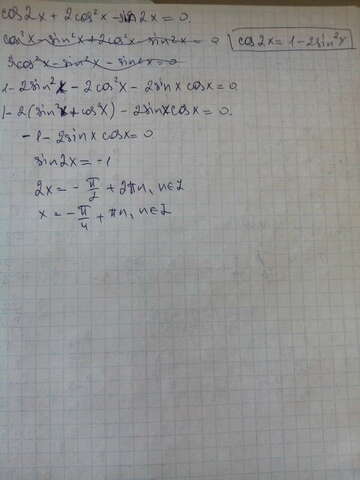 cos2x + 2cos²x - sin2x = 0.
cos²x - sin²x + 2cos²x - sin2x = 0 cos2x = 1 - 2sin²x
3cos²x - sin²x - sin2x = 0
1 - 2sin²x - 2cos²x - 2sinx cosx = 0
1 - 2(sin²x + cos²x) - 2sinx cosx = 0.
- 1 - 2sinx cosx = 0
sin2x = -1
2x = - π/2 + 2πn, n∈Z
x = - π/4 + πn, n∈Z